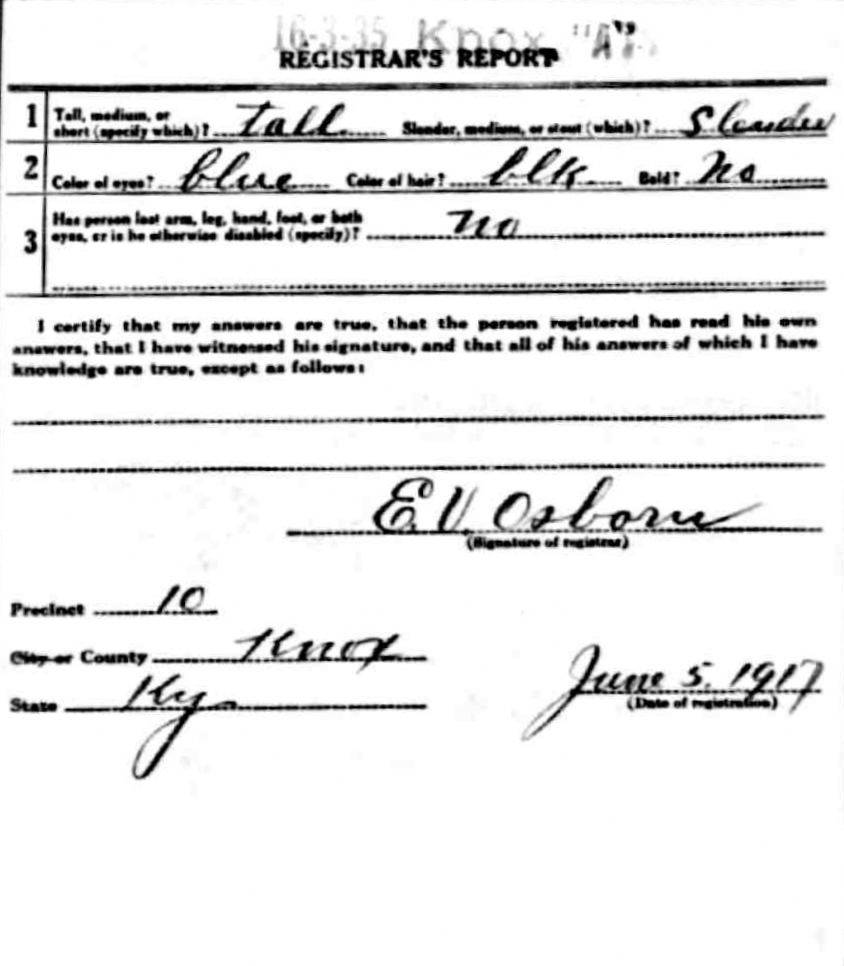 16-3-35 Knox "A".
REGISTRAR'S REPORT
1 Tall, medium, or short (specify which)? tall Slender, medium, or stout (which)? Slender
2 Color of eyes? blue Color of hair? blk Bald? No
3 Has person lost arm, leg, hand, foot, or both
eyes, or is he otherwise disabled (specify)? no
I certify that my answers are true, that the person registered has read his own
answers, that I have witnessed his signature, and that all of his answers of which I have
knowledge are true, except as follows:
E. V. Osborn
(Signature of registrar)
Precinct 10
City or County Knox
State Ky.
June 5. 1917
(Date of registration)